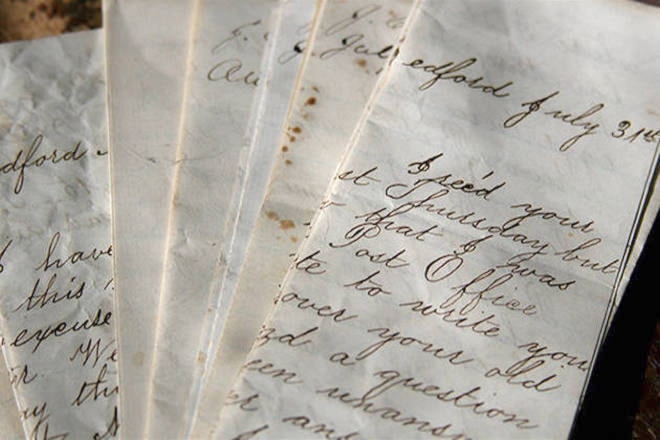 dford
I have
this
excuse
r. We
y thi
J.
Au
J. July
edford July 31st
I rec'd your
st Thursday but
that I was
Post Office
te to write you
over your old
d a question
een unansw
er an